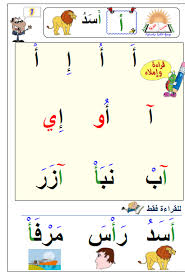 أ أَسَدُ
1
أَ أُ إِ أْ
قراءة
وإملاء
آ أُو إِي
آبْ نَبَأْ آزَرَ
للقراءة فقط
أَسَدُ رَأْسَ مَرْفَأْ